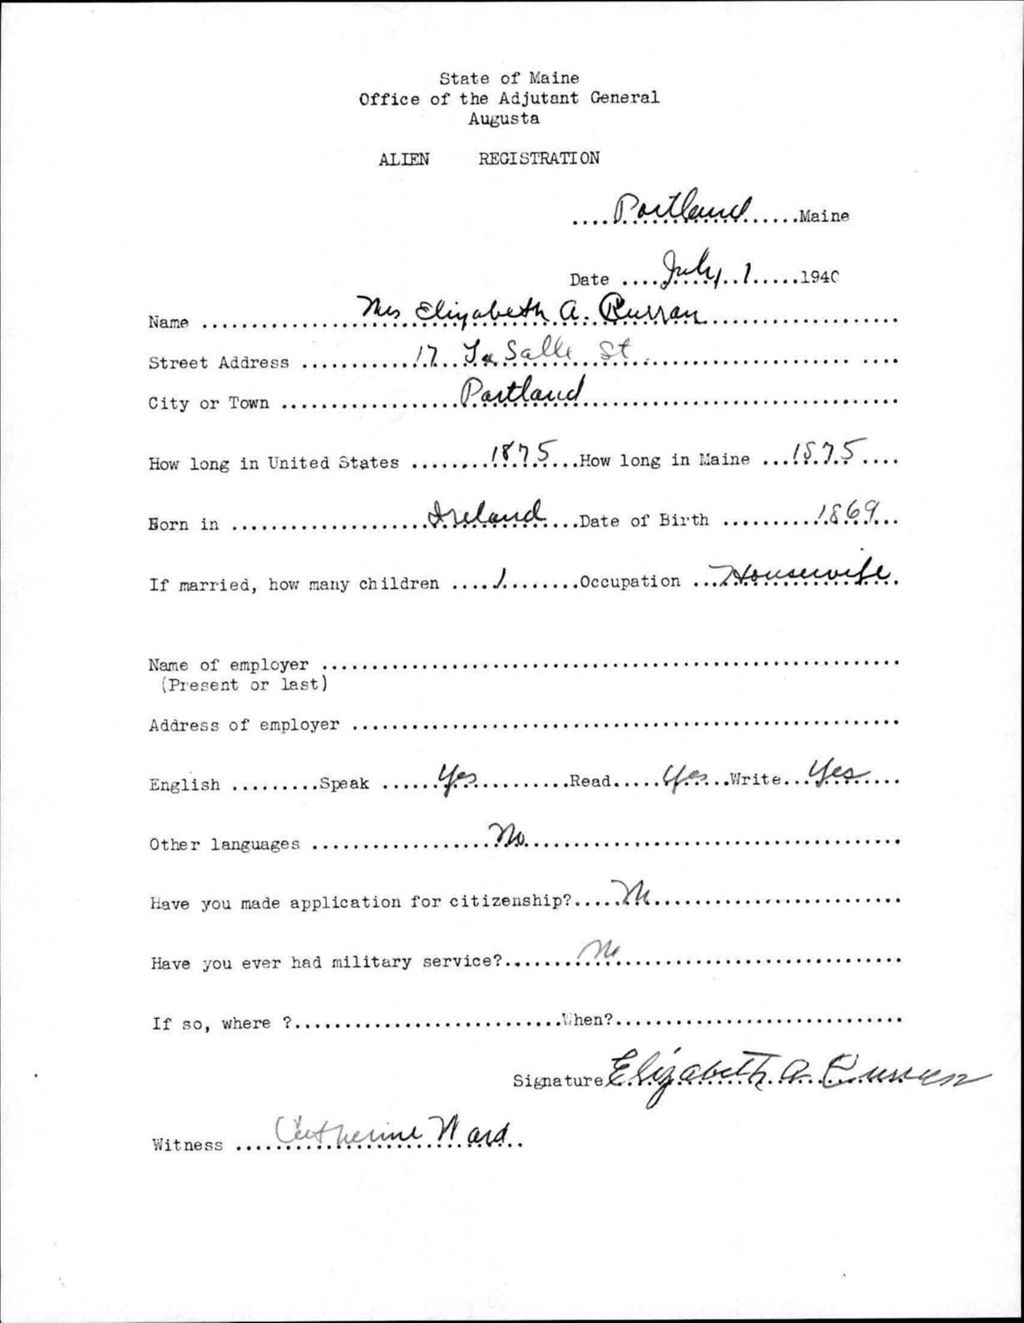 State of Maine
Office of the Adjutant General
Augusta
ALIEN REGISTRATION
....Portland......Maine
Date ....July 1.....1940
Name ........Mrs Elizabeth A. Curran........
Street Address ........17 La Salle St........
City or Town ........Portland........
How long in United States ........1875...How long in Maine ...1875....
Born in ........Ireland...Date of Birth ........1869...
If married, how many children ....1........Occupation ...Housewife.
Name of employer ........
(Present or last)
Address of employer ........
English .........Speak ......Yes.........Read.....Yes...Write...Yes....
Other languages ........No........
Have you made application for citizenship?.....No........
Have you ever had military service?........No........
If so, where ?........When?........
Signature Elizabeth A Curran
Witness ....Catherine Ward..